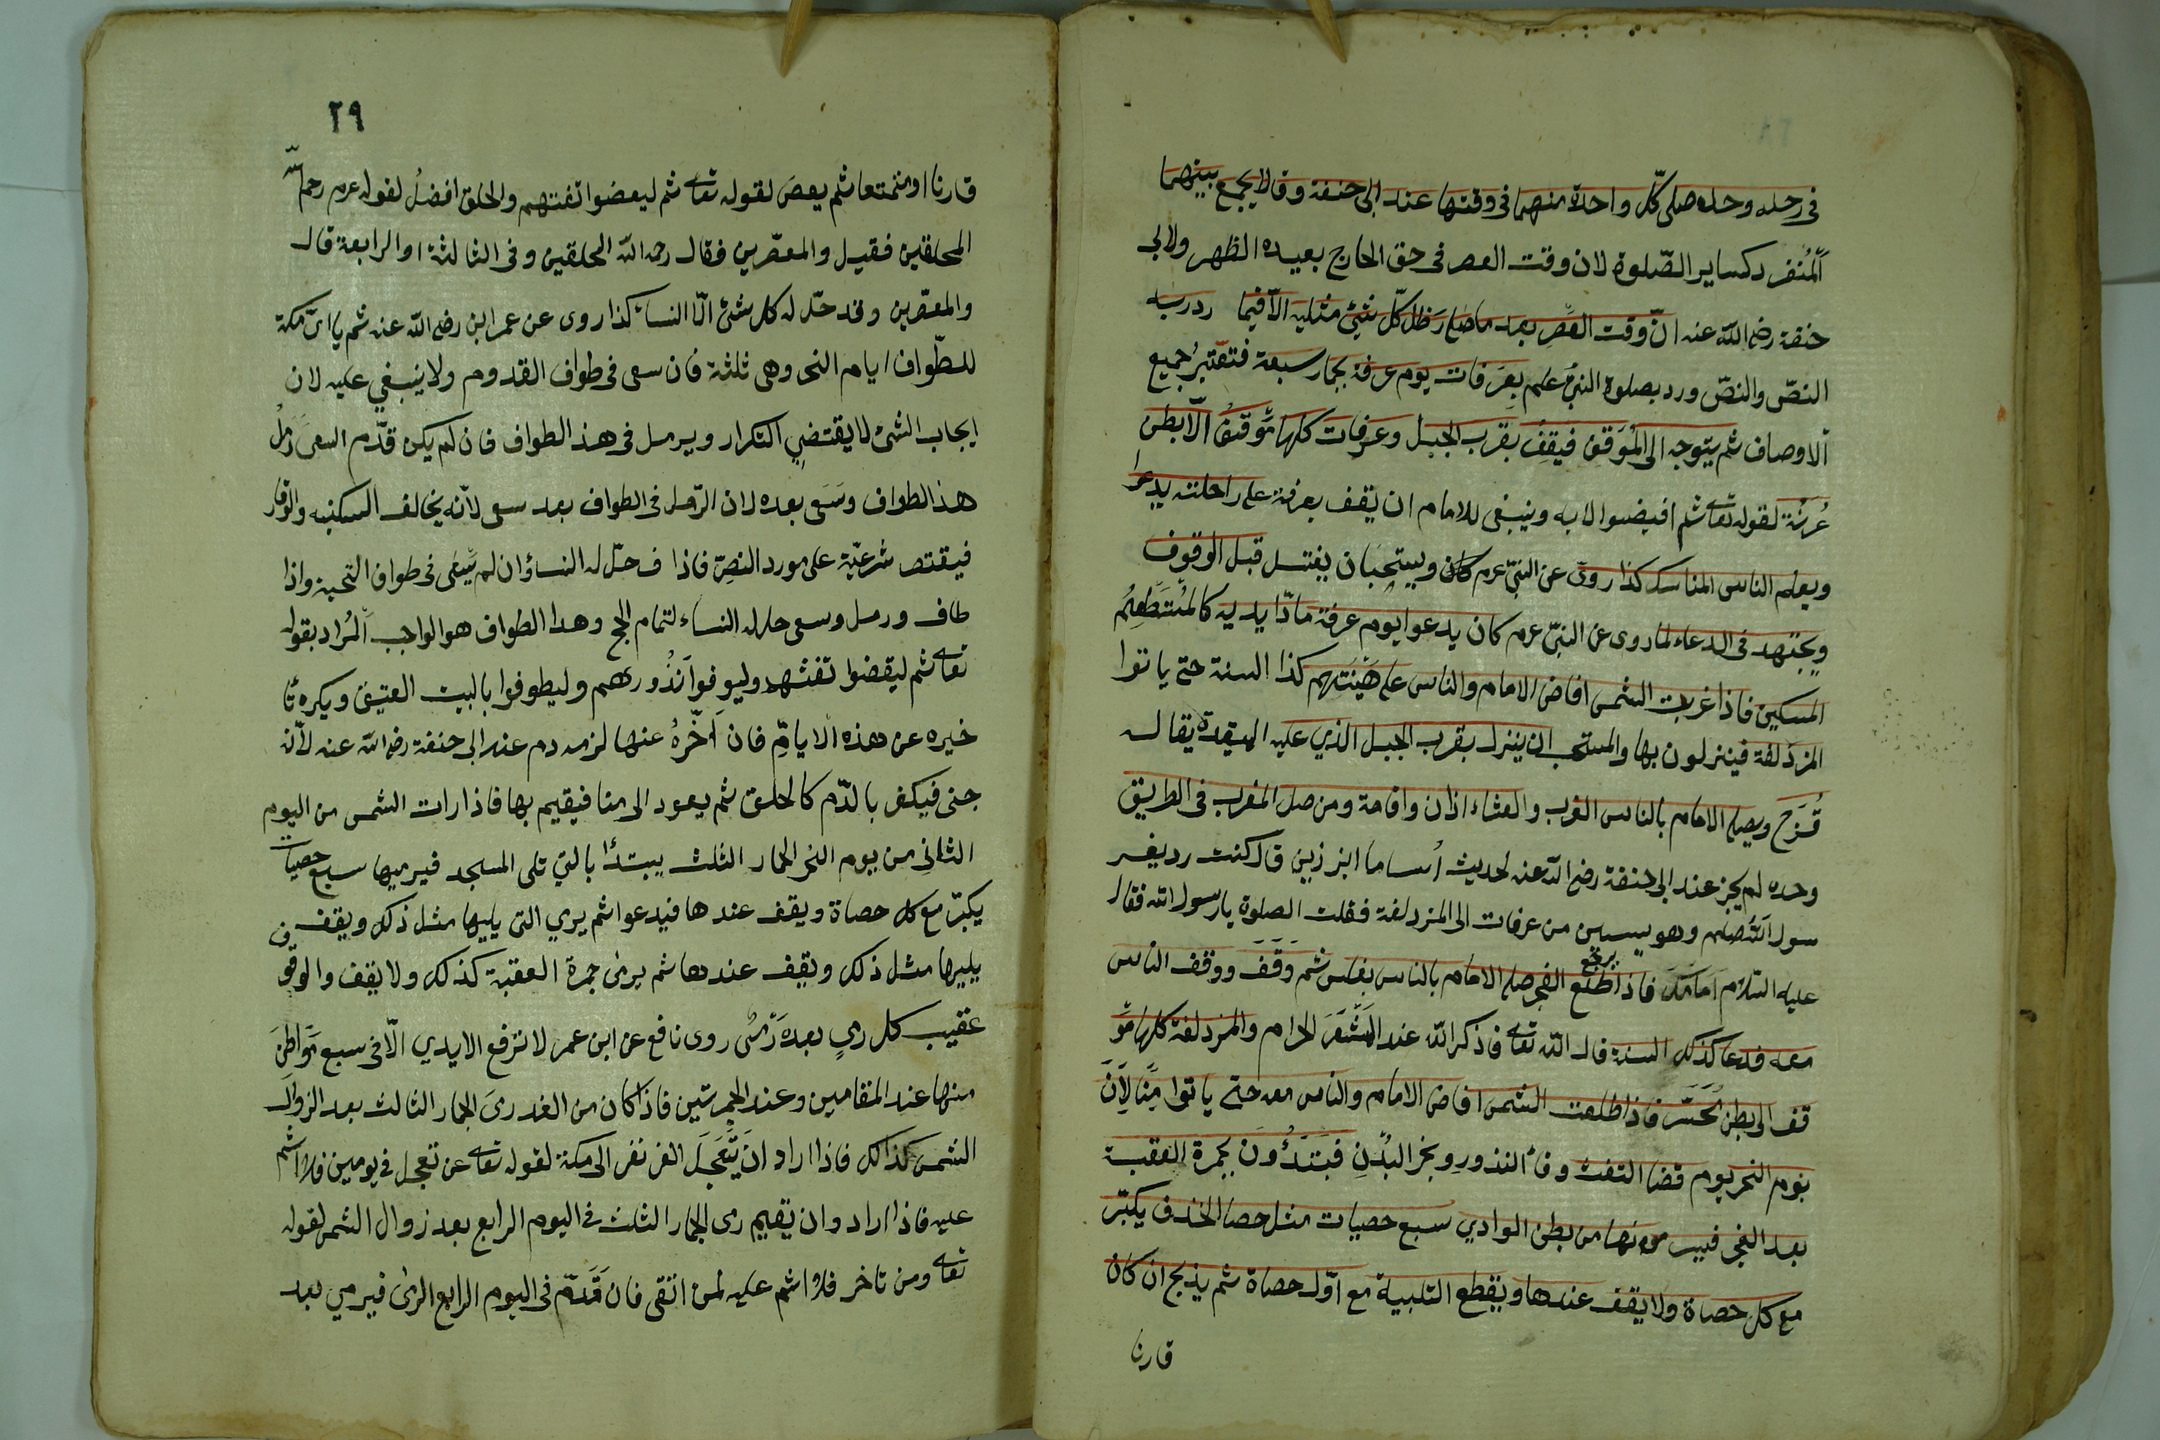 فى رحله وحده صلى كل واحدة منهما فى وقتها عند ابى حنفة وقالا يجمع بينهما
المنفرد كساير الصلوة لان وقت العصر فى حق الحاج بعيده الظهر ولابى
حنفة رضى الله عنه ان وقت العصر بعد ما صار ظل كل شئ مثليه الا فيما ردربه
النص والنص ورد بصلوة النبى علم بعرفات يوم عرفة بجمار سبعة فتعتبر جميع
الاوصاف ثم يتوجه الى الموقف فيقف بقرب الجبل وعرفات كلها موقف الا بطن
عرنة لقوله تعالى ثم افيضوا الايه وينبغى للامام ان يقف بعرفة على راحلته يدعوا
ويعلم الناس المناسك كذا روى عن النبى عرم كان ويستحب ان يغتسل قبل الوقوف
ويجتهد فى الدعاء لما روى عن النبى عرم كان يدعوا يوم عرفة مادا يديه كالمستطعم
المسكين فاذا غربت الشمس افاض الامام والناس على هينتهم كذا السنة حتى ياتوا
المزدلفة فينزلون بها والمستحب ان ينزل بقرب الجبل الذي عليه الميقدة يقال
قزح ويصلى الامام بالناس المغرب والعشاء اذان واقامة ومن صلى المغرب فى الطريق
وحده لم يجز عند ابى حنفة رضى الله عنه لحديث اساما ابن زين قال كنت رديف
سول الله صلم وهو يسير من عرفات الى المزدلفة فقلت الصلوة يا رسول الله فقال
عليه السلام امامك فاذا طلع الفجر صلى الامام بالناس بغلس ثم وقف ووقف الناس
معه فدعا كذلك السنة قال الله تعالى فاذكرالله عند المشعر الحرام والمزدلفة كلها مو
قف الى بطن محسر فاذا طلعت الشمس افاض الامام والناس معه حتى ياتوا منا لان
يوم النحر يوم قضا التفث وفأ النذور ونحر البدن فيبتدؤن بجمرة العقبة
بعد الفجر فيرمونها من بطن الوادي سبع حصيات مثل حصا الخذف يكبر
مع كل حصاة ولا يقف عندها ويقطع التلبية مع اول حصاة ثم يذبح ان كان
قارنا
٢٩
قارنا او متمتعا ثم يعص لقوله تعالى ثم ليعضوا تفتهم والحلق افضل لقوله عرم رحم الله
المحلقين فقيل والمعصرين فقال رحمه الله المحلقين وفى الثالثة او الرابعة قال
والمعصرين وقد حل له كل شئ الا النساء كذا روى عن عمر ابن رضى الله عنه ثم ياتى مكة
للطواف ايام النحر وهى ثلثة فان سعى فى طواف القدوم ولا ينبغي عليه لان
ايجاب الشئ لا يقتضي التكرار ويرمل فى هذا الطواف فان لم يكن قدم السعى رمل
هذا الطواف وسعى بعده لان الرمل فى الطواف بعد سعى لانه يخالف السكنيه والوقار
فيقتصر شرعية على مورد النص فاذا ف حل له النساؤ ان لم يسعى فى طواف التحية واذا
طاف ورمل وسعى حل له النساء لتمام الحج وهدا الطواف هو الواجب المراد بقوله
تعالى ثم ليقضوا تفثهم وليوفوا نذورهم وليطوفوا بالبيت العتيق ويكره تا
خيره عن هذه الايام فان اخره عنها لزمه دم عند ابى حنفة رضى الله عنه لانه
جنى فيكفر بالدم كالحلق ثم يعود الى منا فيقيم بها فاذا رات الشمس من اليوم
الثانى من يوم النحر الجمار الثلث يبتدأ بالتي تلى المسجد فيرميها سبع حصيات
يكبر مع كل حصاة ويقف عندها فيدعوا ثم يرمي التى يليها مثل ذلك ويقف
يليرها مثل ذلك ويقف عندها ثم يرمى جمرة العقبة كذلك ولا يقف والوقوف
عقيب كل رمي بعده رمى روى نافع عن ابن عمر لا ترفع الايدي الا فى سبع مواطن
منها عند المقامين وعند الجمرتين فاذا كان من الغد رمى الجمار الثالث بعد الزوال
الشمس كذالك فاذا اراد ان يتعجل الفر نفر الى مكة لقوله تعالى عن تعجل فى يومين فلا اثم
عليه فاذا اراد وان يقيم رمى الجمار الثلث فى اليوم الرابع بعد زوال الشمس لقوله
تعالى ومن تاخر فلا اثم عليه لمن اتقى فان قدم فى اليوم الرابع الرمى فيرمي بعد